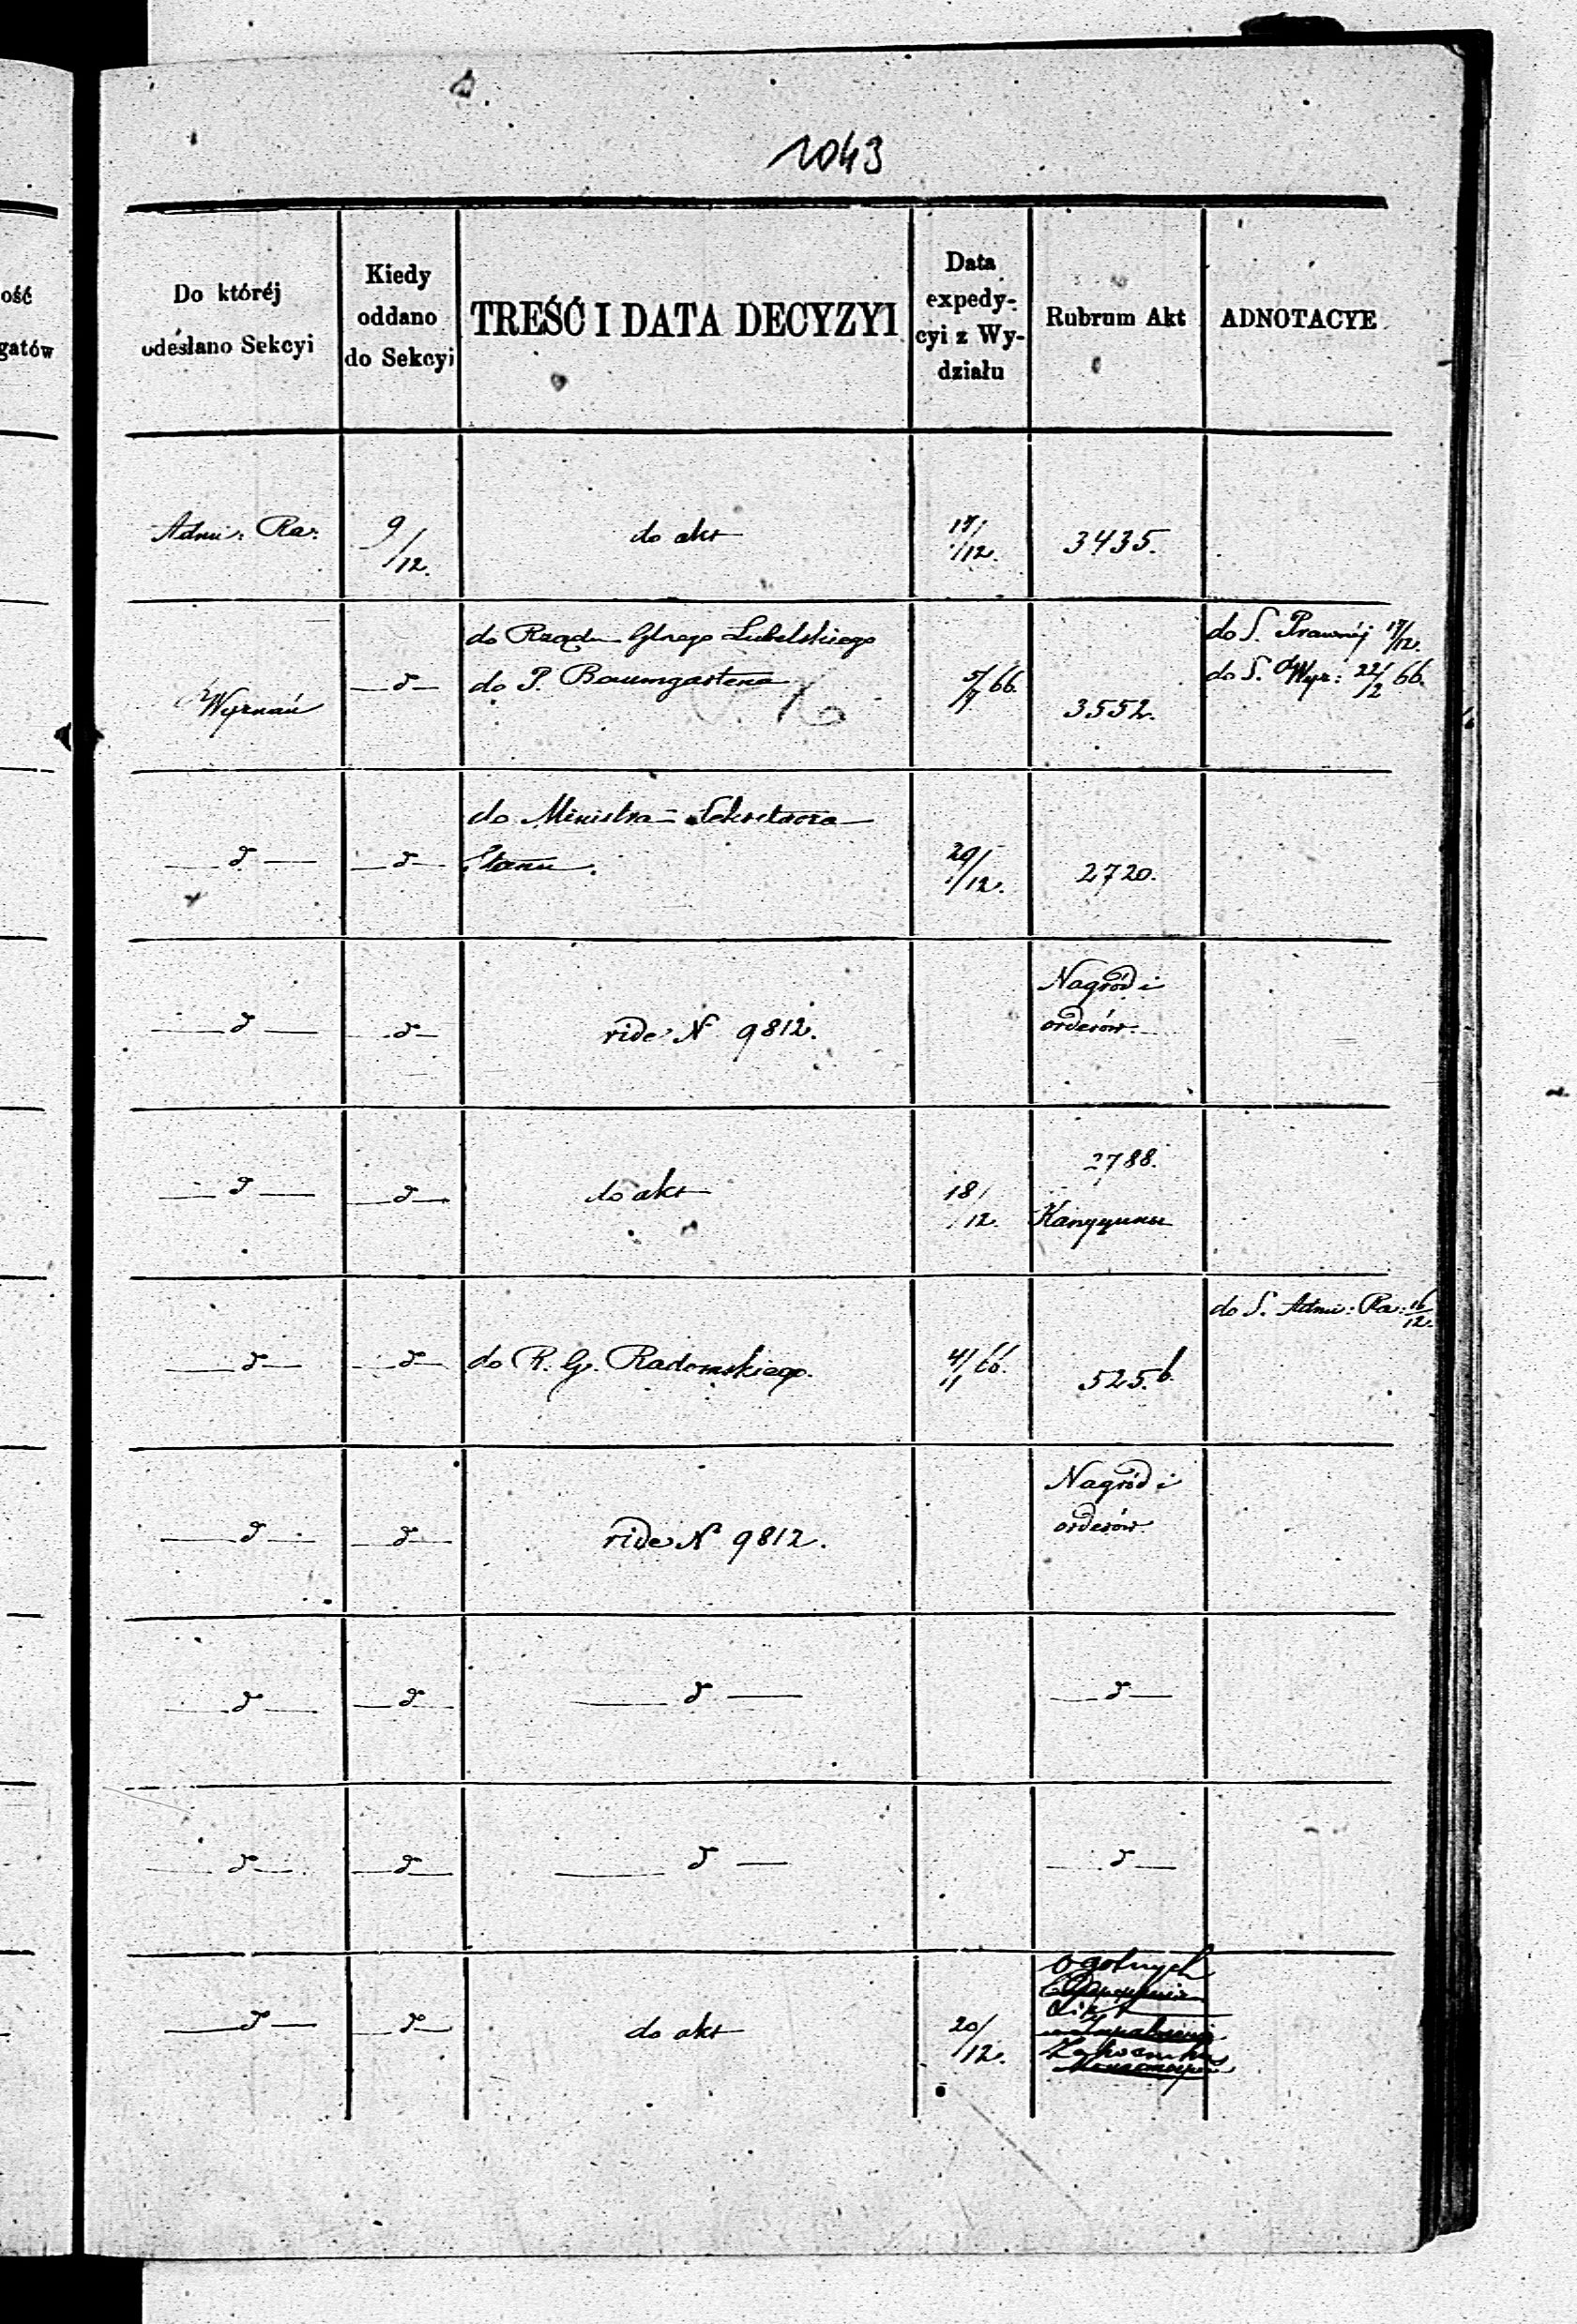 1043
ość
gatów
Do któréj
odesłano Sekcyi
Kiedy
oddano
do Sekcyi
TREŚĆ I DATA DECYZYI
Data
expedy-
cyi z Wy-
działu
Rubrum Akt
ADNOTACYE
Admi: Ra:
9/12.
do akt
17/12.
3435.
Wyznań
d
do Rządu Glnego Lubelskiego
do P. Baumgartena
66.
3552.
do S. Prawnéj 17/12.
do S. Wyz: 22/12 66.
d
d
do Ministra Sekretarza
Stanu.
29/12.
2720.
d
d
vide N 9812.
Nagród i
orderów.
d
d
do akt
18/12.
2788.
d
d
do R. G. Radomskiego.
4/11 66.
525.b.
do S. Admi: Ra: 16/12.
d
d
vide N 9812.
Nagród i
orderów.
d
d
d
d
d
d
d
d
d
d
do akt
20/12.
ogolnych